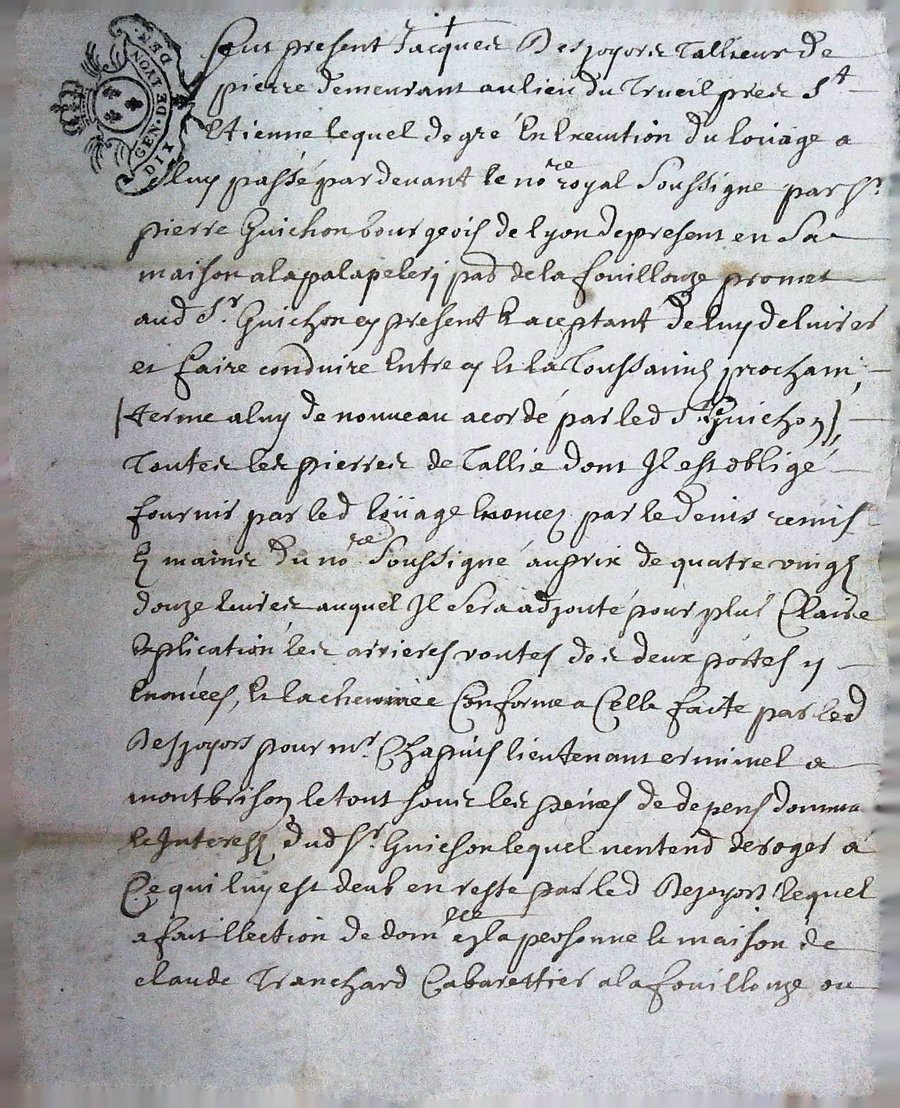 GEN. DE LYON
DIX DEN.
Fut present Jacques Desjoyors Tallieur de
pierre demeurant au lieu du Treuil pres St
Etienne lequel de gré En Execution du loüage a
luy passé par devant le nore royal Soussigne par Sr
pierre Guichon bourgeois de lyon de present en Sa
maison a la palapeleri pas de la fouillouze promet
aud Sr Guichon cy present & aceptant de luy delivrer
et faire conduire Entre cy & la Toussainct prochain
(terme a luy de nouveau acordé par led Sr Guichon)
Toutes les pierres de Tallie dont Il est obligé
fournir par led loüage Enoncez par le devis remis
Ez mains du nore Soussigné au prix de quatre vingt
douze livres auquel Il Sera adjouté pour plus Claire
Explication les arrieres voutes des deux portes y
Enoncées, & la cheminée Conforme a Celle faite par led
Desjoyors pour mr Chapuis lieutenant criminel a
montbrison le tout Sous les peines de depens domma
& Interestz dud Sr Guichon lequel n'entend deroger a
Ce qui luy est deub en reste par led Desjoyors lequel
a fait Election de domlle en la personne & maison de
claude Tranchard Cabarettier a la fouillouze ou